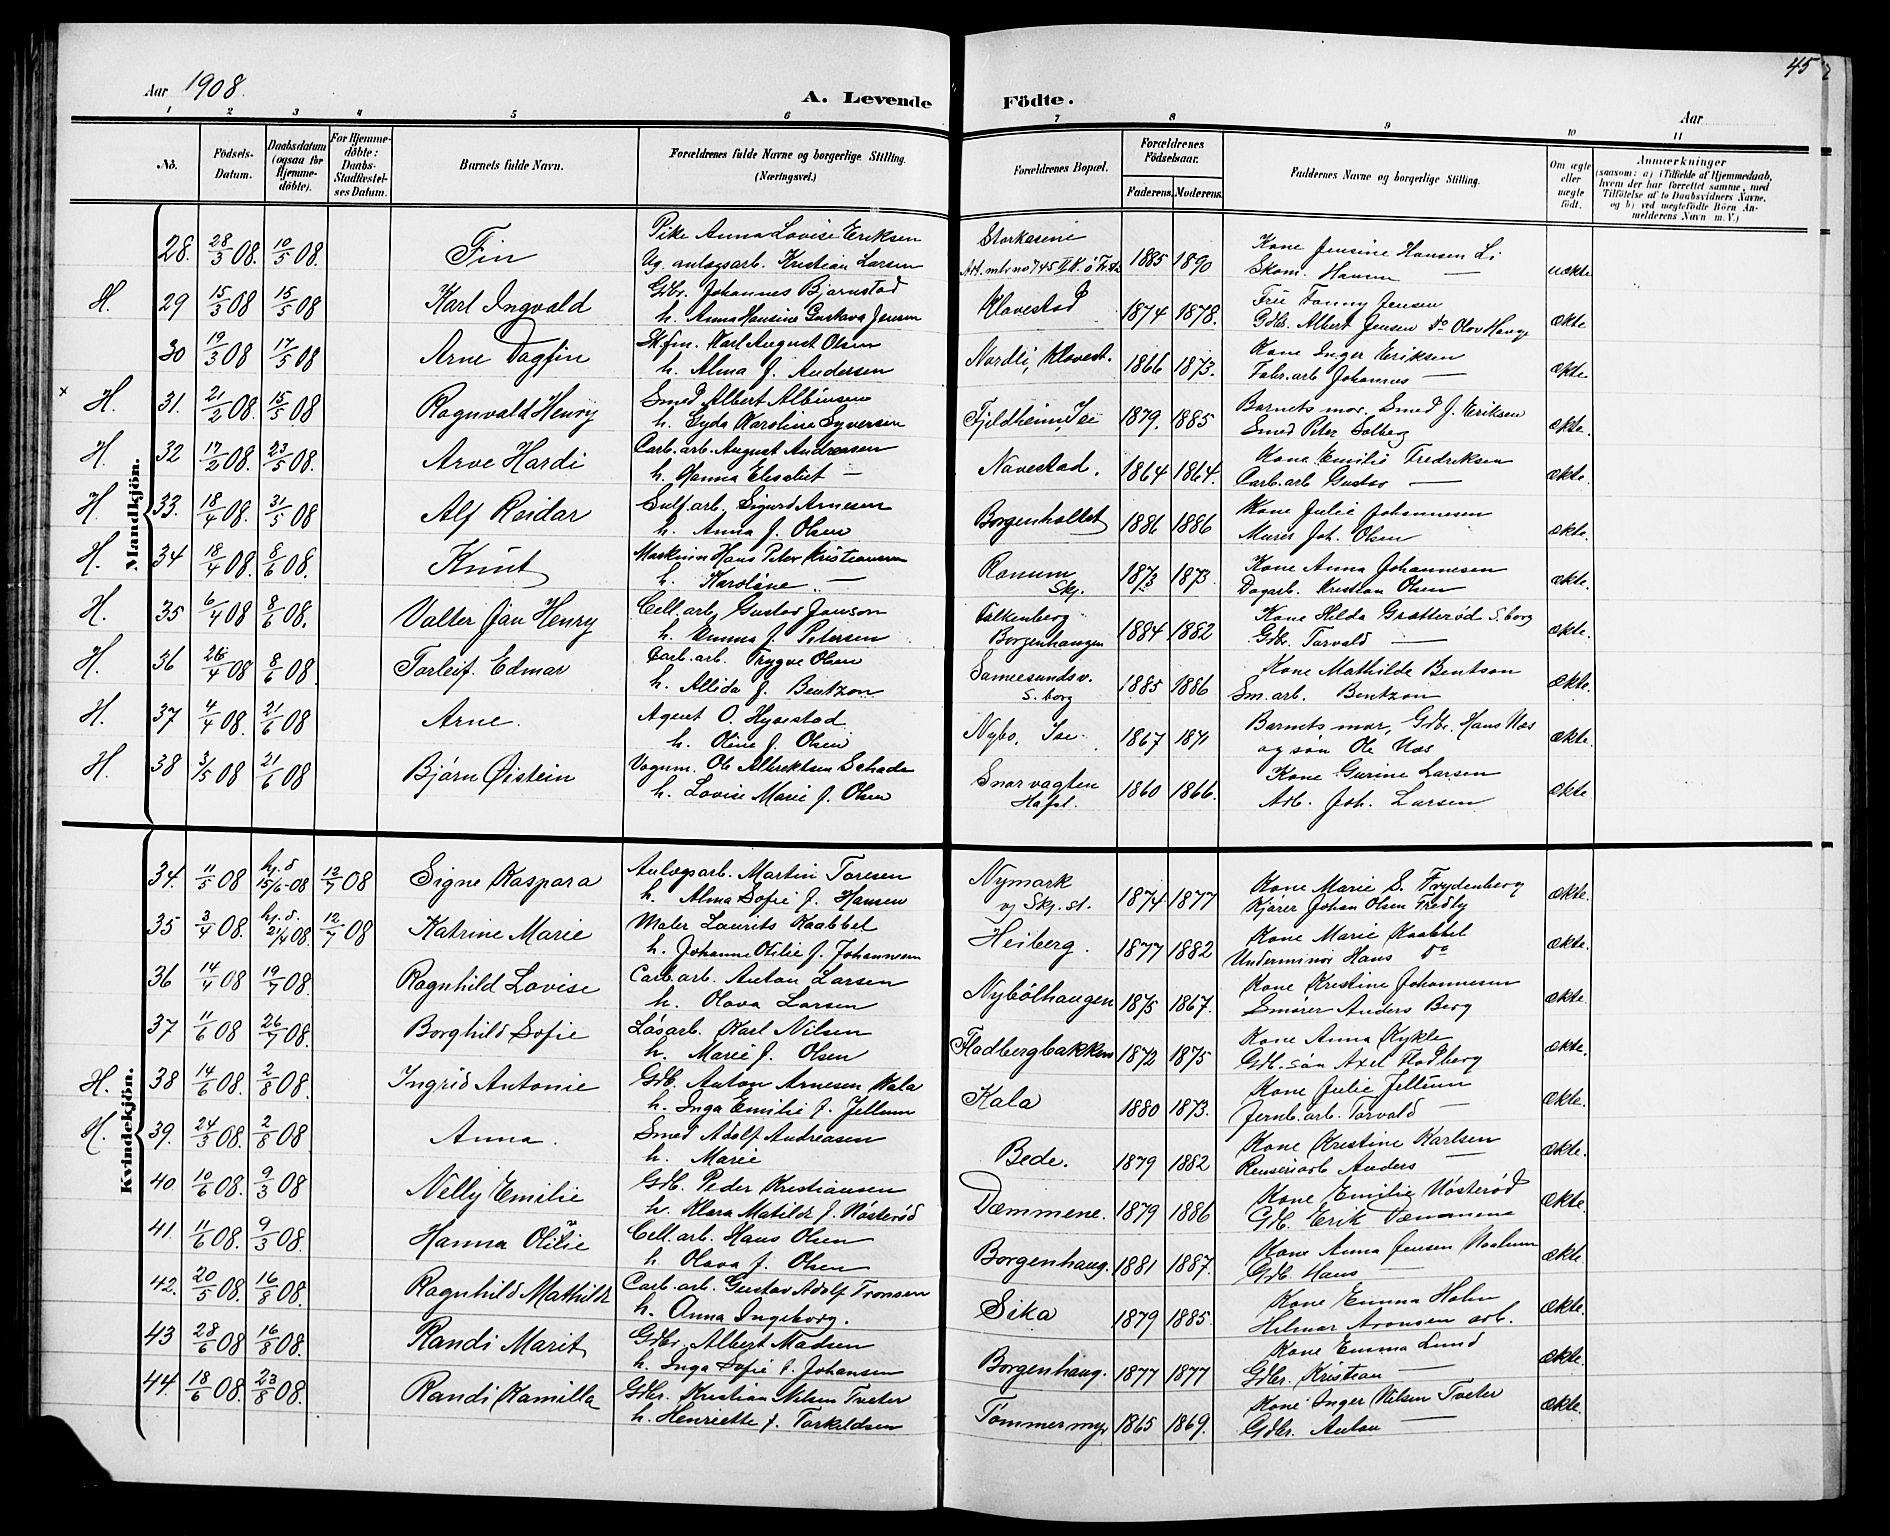 45
Aar 1908.
A. Levende Födte.
Aar
1 2 3 4 5 6 7 8 9 10 11
No.
Födsels-Datum.
Daabsdatum (ogsaa for Hjemme-döbte).
For Hjemme-döbte: Daabs-Stadfæstel-ses Datum.
Barnets fulde Navn.
Forældrenes fulde Navne og borgerlige Stilling. (Næringsvei.)
Forældrenes Bopæl.
Forældrenes Födselsaar.
Faderens. Moderens.
Faddernes Navne og borgerlige Stilling.
Om ægte eller uægte födt.
Anmærkninger
(saasom: a) i Tilfælde af Hjemmedaab, hvem der har forrettet samme, med Tilföielse af to Daabsvidners Navne, og b) ved uegtefödte Börn An-melderens Navn m. V.)
Mandkjön.
28. 28/3 08. 10/5 08. Fin
Pike Anna Lovise Eriksen
Ug. anlægsarb. Kristian Larsen
1885 1890
Kone Jensine Hansen
Skom. Hansen —
uækte
H. 29 15/3 08. 15/5 08. Karl Ingvald
Gdbr. Johannes Bjørnstad
h. Anna Hansine Gustava Jensen
Klavestad 1874 1878.
Fru Fanny Jensen
Gdbr. Albert Jensen do Olav Haug
ækte
30 19/3 08 17/5 08 Arne Dagfin
Kfm. Karl August Olsen
h. Alma f. Andersen
Nordli, Klavest. 1866 1873.
Kone Inger Eriksen
Fabr.arb Johannes —
ækte
x H. 31. 21/2 08. 15/5 08 Ragnvald Henry
Smed Albert Albinsen
h. Gyda Karoline Syversen
Fjeldheim, Ise 1879. 1885
Barnets mor. Smed J. Eriksen
Smed Peter Solberg
ækte.
H. 32 17/2 08. 23/5 08. Arve Hardi
Carb. arb. August Andreasen
h. Hanna Elisabet —
Navestad. 1864 1864.
Kone Emilie Fredriksen
Carb.arb Gustav —
ækte.
H. 33. 18/4 08. 31/5 08 Alf Reidar
Sulf.arb, Sigurd Arnesen
h. Anna f. Olsen
Borgenholtet 1886 1886
Kone Julie Johannesen
Murer Joh. Olsen
ækte.
H. 34 18/4 08. 8/6 08. Knut
Maskinm Hans Peter Kristiansen
h. Karoline —
Ranum Skj. 1873 1873.
Kone Anna Johannesen
Dagarb. Kristian Olsen
ækte.
H. 35 6/4 08 8/6 08. Valter Jan Henry
Cell.arb, Gustav Janson
h. Emma f. Petersen
Falkenberg Borgenhaugen 1884 1882
Kone Hilda Grøtterød S.borg
Gdbr. Torvald —
ækte.
H. 36 26/4 08 8/6 08. Torleif Edmar
Carb.arb. Trygve Olsen
h. Allida f. Bentzon
S. borg 1885 1886
Kone Mathilde Bentson
Sm. arb. Bentzon
ækte.
H. 37 4/4 08. 21/6 08 Arne.
Agent O. Hyllestad
h. Oline f. Olsen
Nybo, Ise. 1867 1871
Barnets mor, Gdbr. Hans Næs
og søn Ole Næs
ækte.
H. 38 3/5 08 21/6 08 Bjørn Øistein
Vognm. Ole Albrektsen Schade
h. Lovise Marie f. Olsen
Snarvagten Hafsl. 1860 1866.
Kone Gurine Larsen
Arb. Joh. Larsen
ækte
Kvindekjön.
34. 11/5 08 hj.d 15/6-08 12/7 08 Signe Kaspara
Anlægsarb. Martin Toresen
h. Alma Sofie f. Hansen
Nymark v/ Skj. st. 1874 1877
Kone Marie S. Frydenberg
Kjører Johan Olsen Tredby
ækte.
35 3/4 08 hj.d. 21/4 08. 12/7 08 Katrine Marie
Maler Laurits Kaabbel
h. Johanne Otilie f. Johannesen
Heiberg. 1877 1882
Kone Marie Kaabbel
Underminør Hans do
ækte.
36 14/4 08 19/7 08. Ragnhild Lovise
Carb.arb. Anton Larsen
h. Olava Larsen
Nybølhaugen 1875 1867.
Kone Kristine Johannesen
Smører Anders Berg
ækte.
37 11/6 08 26/7 08. Borghild Sofie
Løsarb. Karl Nilsen
h. Marie f. Olsen
Fladbergbakken 1872 1875
Kone Anna Nykle
Gdb. søn Axel Fladberg
ækte.
H. 38 14/6 08. 2/8 08. Ingrid Antonie
Gdb. Anton Arnesen Kala
h. Inga Emilie f. Jellum
Kala 1880 1873.
Kone Julie Jellum
Jernb.arb. Torvald —
ækte.
H. 39. 24/5 08. 2/8 08 Anna.
Smed Adolf Andreasen
h. Marie
Bede. 1879 1882
Kone Kristine Karlsen
Renseriarb Anders —
ækte.
40 10/6 08. 9/3 08 Nelly Emilie
Gdb. Peder Kristiansen
h. Klara Matilde f. Nøsterød
Dæmmene. 1879 1886
Kone Emilie Nøsterød
Gdb. Erik Dæmmene
ækte.
41. 11/6 08. 9/3 08. Hanna Otilie
Cell.arb. Hans Olsen
h. Olava f. Olsen
Borgenhaug. 1881 1887.
Kone Anna Jensen
Gdb. Hans —
ækte.
42. 20/5 08. 16/8 08. Ragnhild Mathilde
Carb.arb. Gustav Adolf Tronsen
h. Anna Ingeborg.
Sika 1879 1885.
Kone Emma Holm
Hilmar Aronsen arb.
ækte.
43 28/6 08 16/8 08. Randi Marit
Gdbr. Albert Madsen
h. Inga Sofie f. Johansen
Borgenhaug. 1877 1877
Kone Emma Lund
Gdbr. Kristian —
ækte.
44. 18/6 08. 23/8 08. Randi Kamilla
Gdbr. Kristian Nilsen Tveter
h. Henriette f. Torkildsen
Tømmermyr 1865 1869.
Kone Inger Nilsen Tveter
Gdbr. Anton —
ækte.